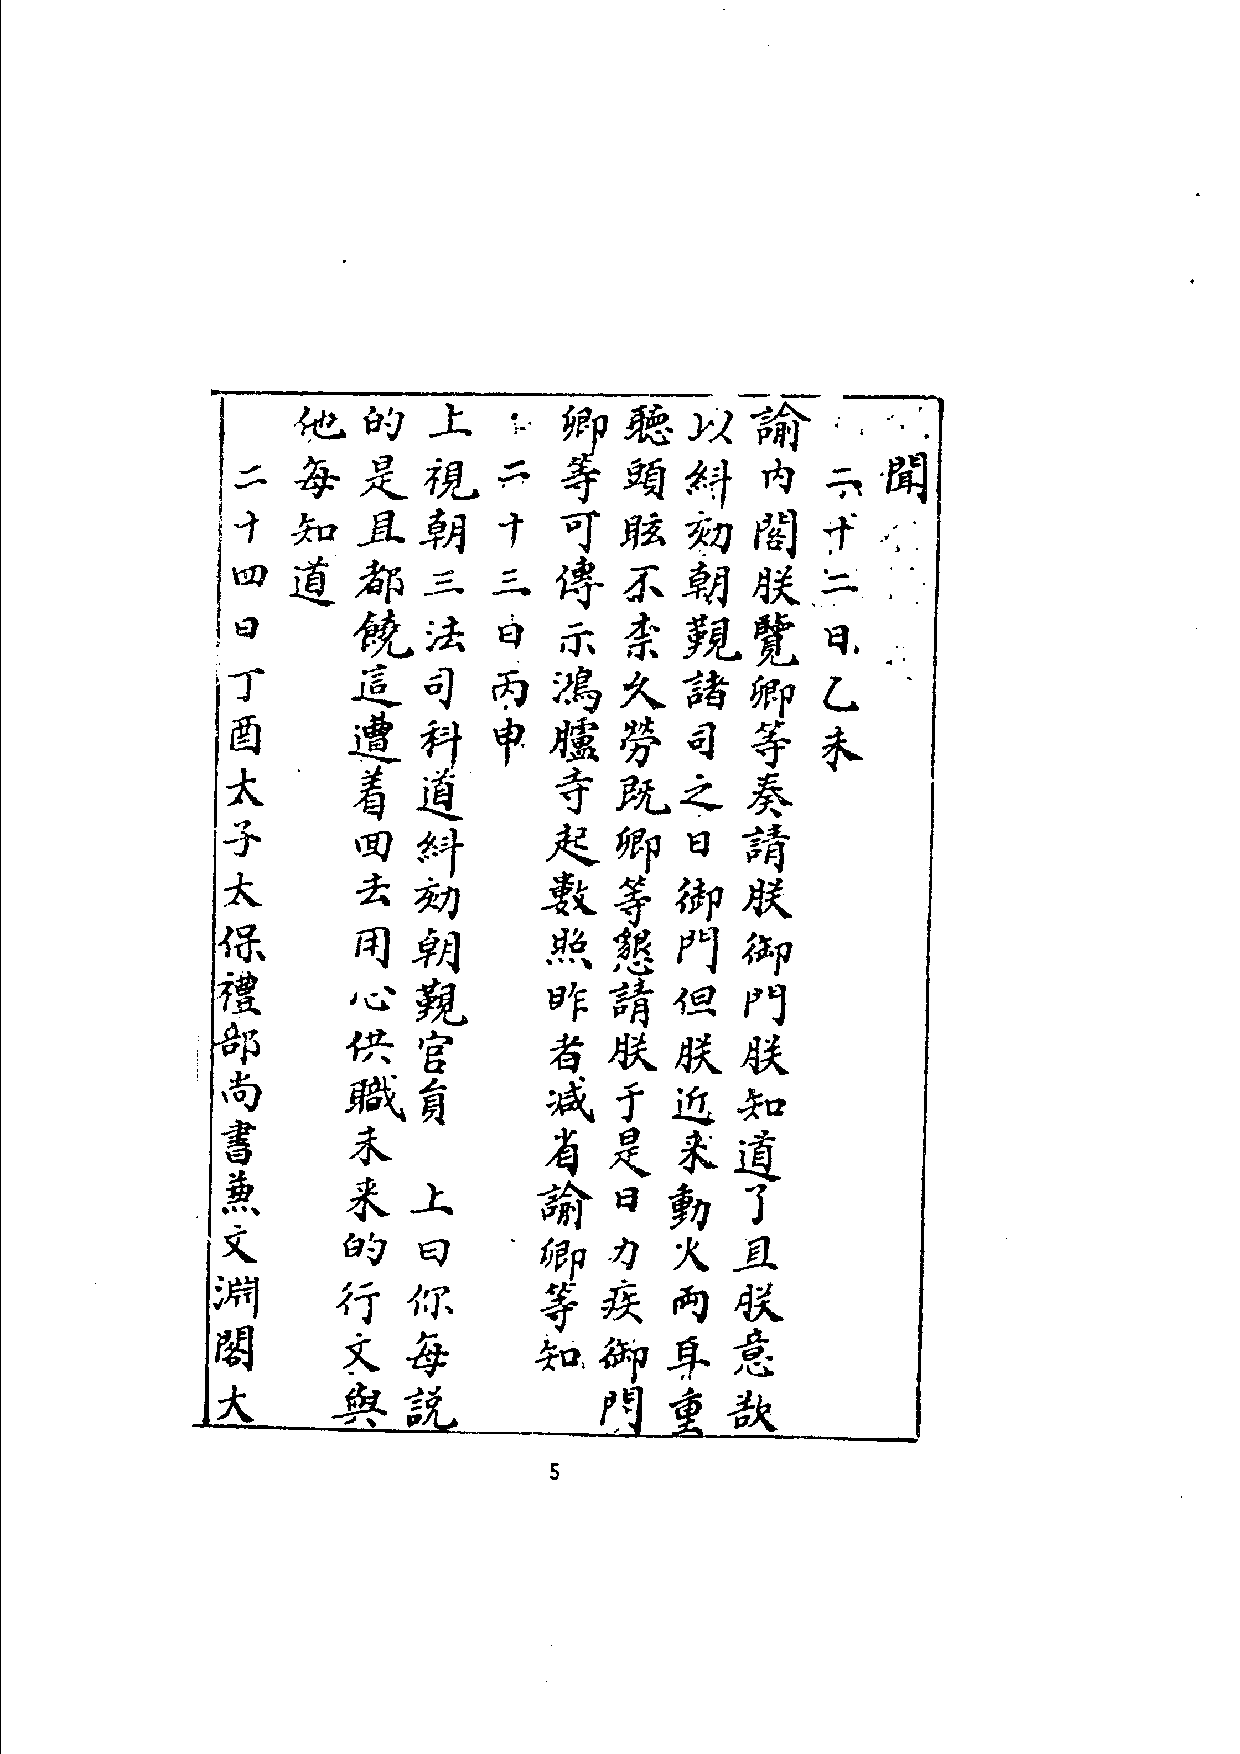 聞
二十二日乙未
諭內閣朕覽卿等奏請朕御門朕知道了且朕意欲
以糾劾朝覲諸司之日御門但朕近来動火兩耳重
聽頭眩不柰久勞既卿等懇請朕于是日力疾御門
卿等可傳示鴻臚寺起數照昨者減省諭卿等知
二十三日丙申
上視朝三法司科道糾劾朝覲官員 上曰你每説
的是且都饒這遭着回去用心供職未来的行文與
他每知道
二十四日丁酉太子太保禮部尚書兼文淵閣大
5